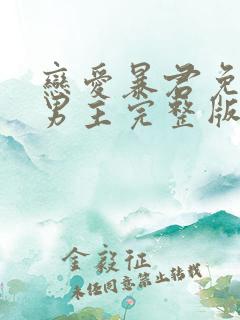 戀愛暴君免
男主完整版
金毅征
未经同意禁止转载